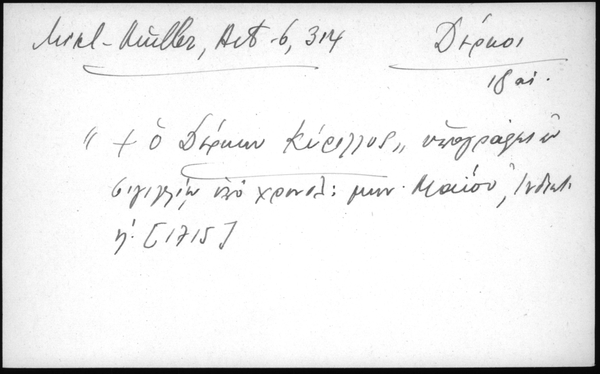 Mikl-Müller, Act 6, 314
Δέρκοι
18 αἰ.
" + ὁ Δέρκων Κύριλλος,, ὑπογράφει ἐν
σιγιλλίῳ, ὑπὸ χρονολ: μην. Μαΐου, Ἰνδικτ.
ή. [1715]